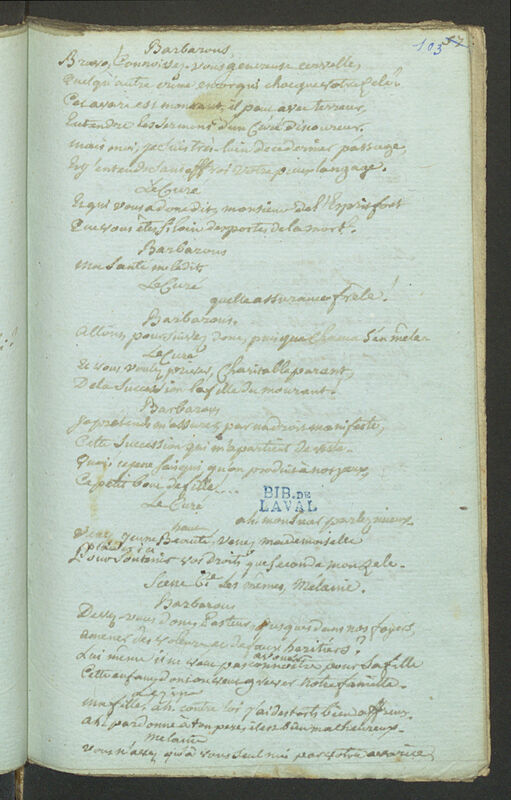 103
Barbarous
Bravo, Connoissez-vous genereuse cervelle,
quelqu'autre crime encor qui choque votre zele?
Cet avare est mourant, il peut avec terreur,
Entendre les sermons d'un Curé discoureur.
mais moi, je suis très-loin de ce dernier passage,
Et j'entendrai sans effroi votre pieux langage.
Le Curé
Et qui vous a donc dit, monsieur de l'Esprit fort
Que vous êtes si loin des portes de la mort?
Barbarous
Ma Santé me le dit
Le Curé
quelle assurance frêle!
Barbarous.
Allons, poursuivez donc, puisque s'en mêle
Le Curé
Et vous voulez priver, Charitable parent,
De la Succession la fille du mourant!
Barbarous
Je prétends m'assurer, par un droit manifeste,
Cette Succession qui m'apartient de reste.
Quoi ce pene jusqu'on produit à nos yeux,
Ce petit bout de fille!...
BIB. DE
LAVAL
Le Curé
ah monsieur parlez mieux
haut
Venez jeune Beauté, venez mademoiselle
plaider ici
Pour soutenir vos droits que seconde mon zele.
Scene 6.e Les mêmes, Mélanie.
Barbarous
Devez-vous donc, Pasteur, jusques dans nos foyers,
amener des voleurs de faux héritiers?
avouer
Lui même il ne veut pas connoître pour sa fille
Cette enfant dont on veut grever notre famille.
Lezine
Ma fille, ah contre toi j'ai des torts bien affreux.
Ah pardonne à ton pere, il est bien malheureux.
Mélanie
Vous n'avez qu'à vous seul nui par votre avarice,